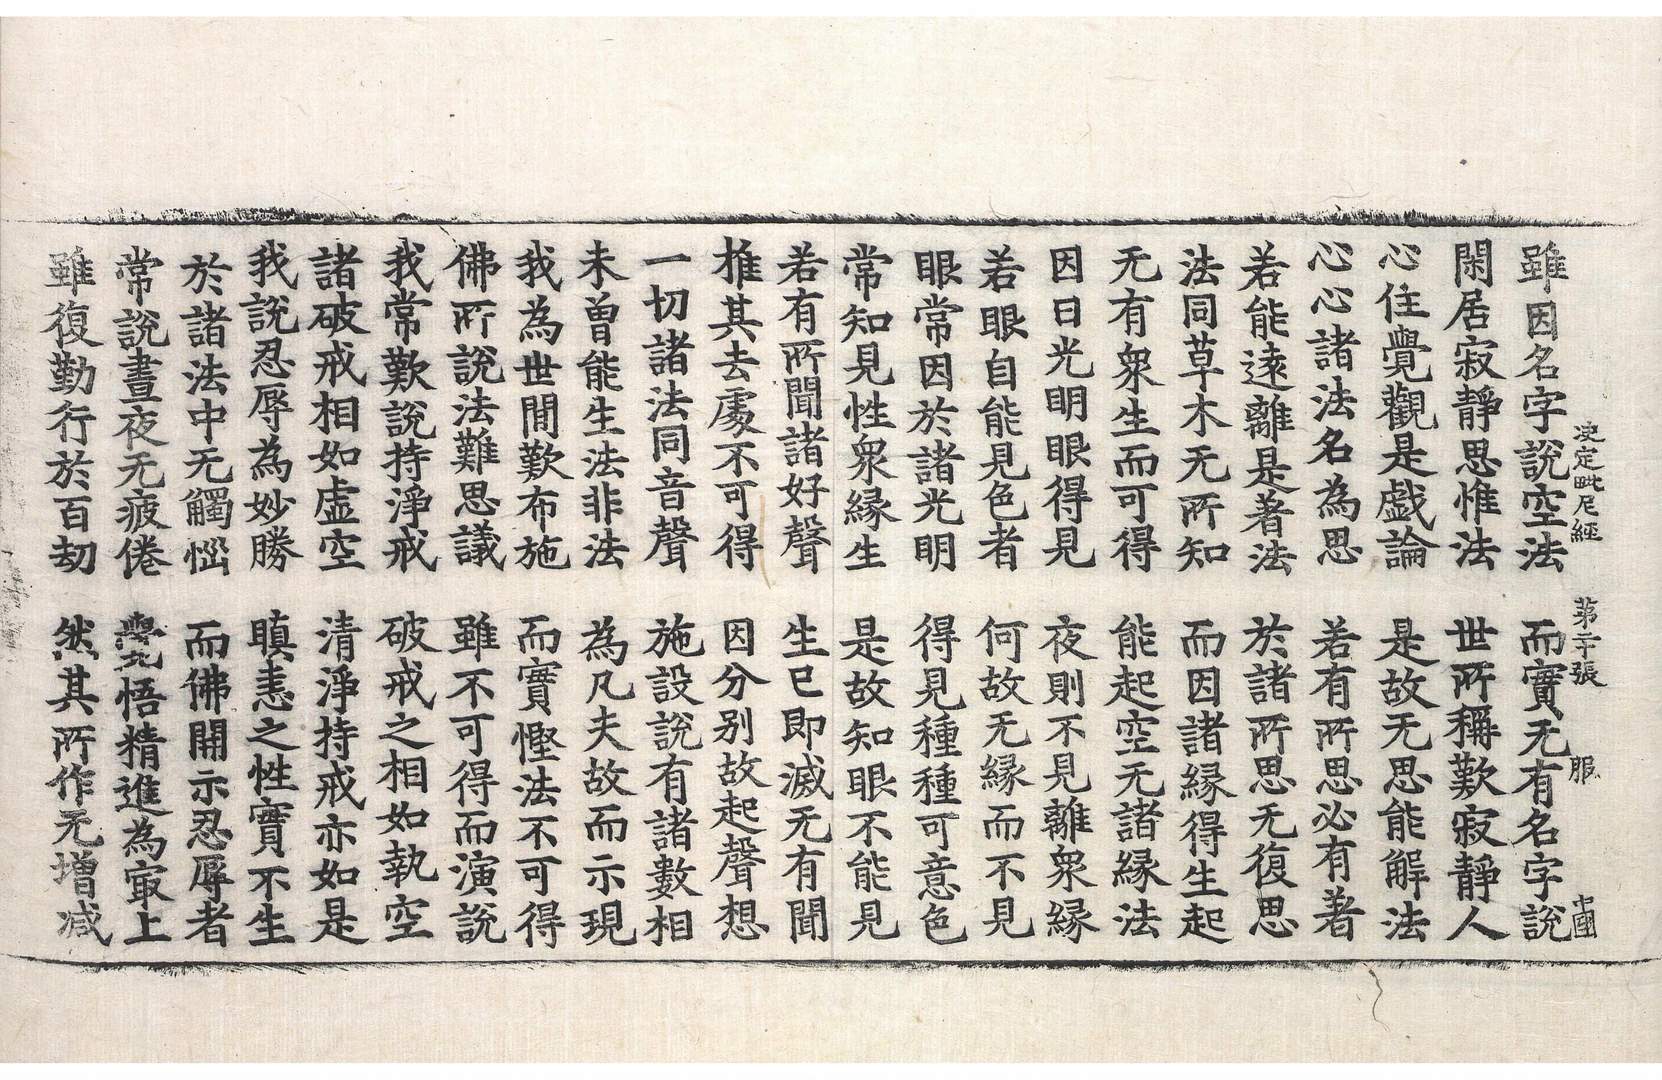 决定毗尼經 第二十張 服
雖因名字說空法 而實无有名字說
閑居寂靜思惟法 世所稱歎寂靜人
心住覺觀是戲論 是故无思能解法
心心諸法名為思 若有所思必有著
若能遠離是著法 於諸所思无復思
法同草木无所知 而因諸緣得生起
无有衆生而可得 能起空无諸緣法
因日光明眼得見 夜則不見離衆緣
若眼自能見色者 何故无緣而不見
眼常因於諸光明 得見種種可意色
常知見性衆緣生 是故知眼不能見
若有所聞諸好聲 生已即滅无有聞
推其去處不可得 因分别故起聲想
一切諸法同音聲 施設說有諸數相
未曽能生法非法 為凡夫故而示現
我為世間歎布施 而實慳法不可得
佛所說法難思議 雖不可得而演說
我常歎說持淨戒 破戒之相如執空
諸破戒相如虛空 清淨持戒亦如是
我說忍辱為妙勝 瞋恚之性實不生
於諸法中无觸惱 而佛開示忍辱者
常說晝夜无疲倦 覺悟精進為㝡上
雖復勤行於百劫 然其所作无增減